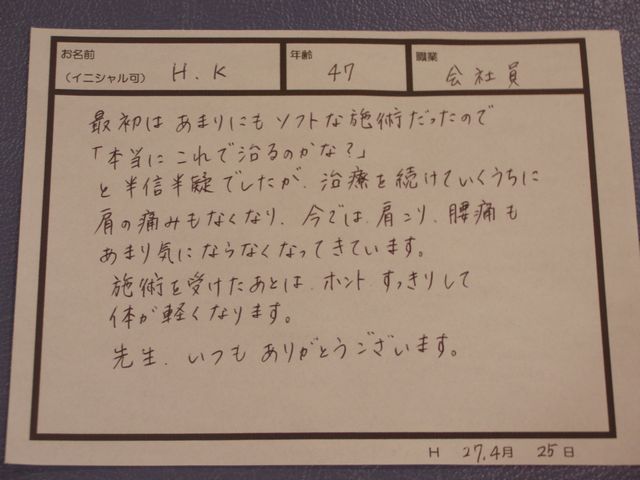 お名前
（イニシャル可） H.K
年齢 47
職業 会社員
最初は あまりにも ソフトな施術だったので
「本当に これで治るのかな？」
と半信半疑でしたが、治療を続けていくうちに
肩の痛みもなくなり、今では、肩こり、腰痛も
あまり気にならなくなってきています。
施術を受けたあとは、ホント すっきりして
体が軽くなります。
先生、いつも ありがとうございます。
H 27.4月 25日